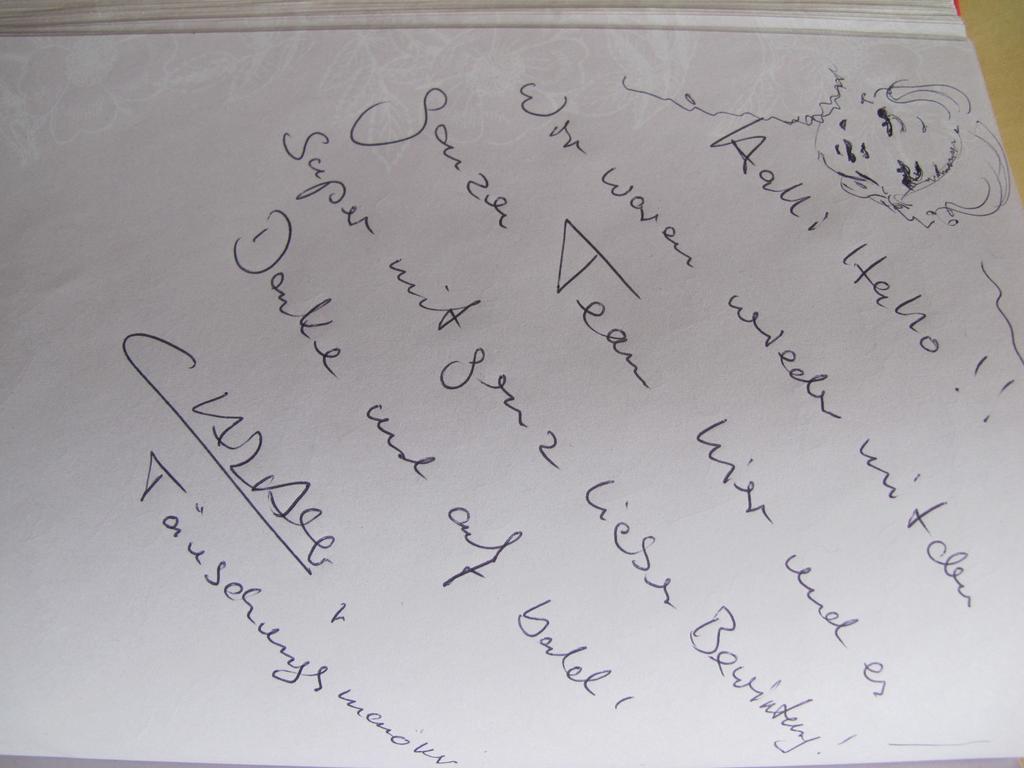 Halli Hallo!!
Wir waren wieder mit dem
Ganzen Team hier und es
Super mit ganz lieber Bewirtung!
Danke und auf bald!
Täuschungsmanöver